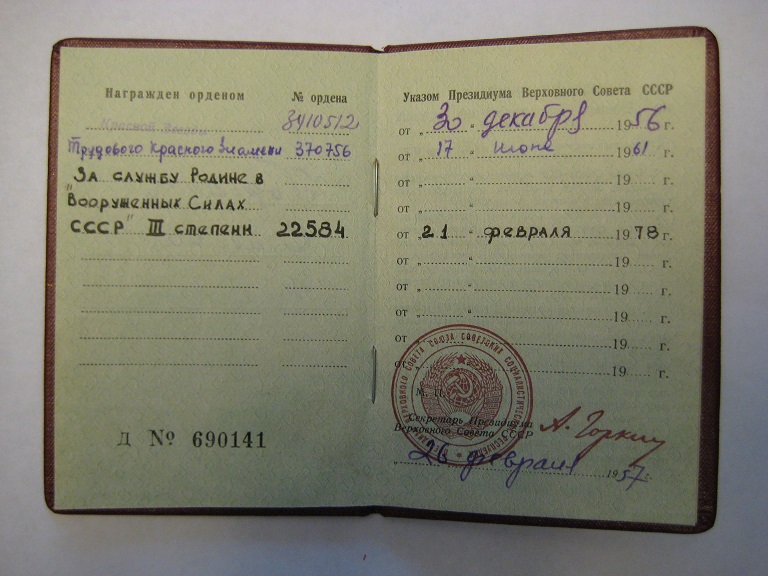 Награжден орденом № ордена
Красной Звезды 3410512
Трудового Красного Знамени 370756
"За службу Родине в
Вооруженных Силах
СССР" III степени 22584
Д № 690141
Указом Президиума Верховного Совета СССР
от „30" декабря 1956 г.
от „17" июня 1961 г.
от „ " 19 г.
от „ " 19 г.
от „21" февраля 1978 г.
от „ " 19 г.
от „ " 19 г.
от „ " 19 г.
от 19 г.
М. П.
Секретарь Президиума
Верховного Совета СССР
А. Горкин
„26 февраля 1957 г.